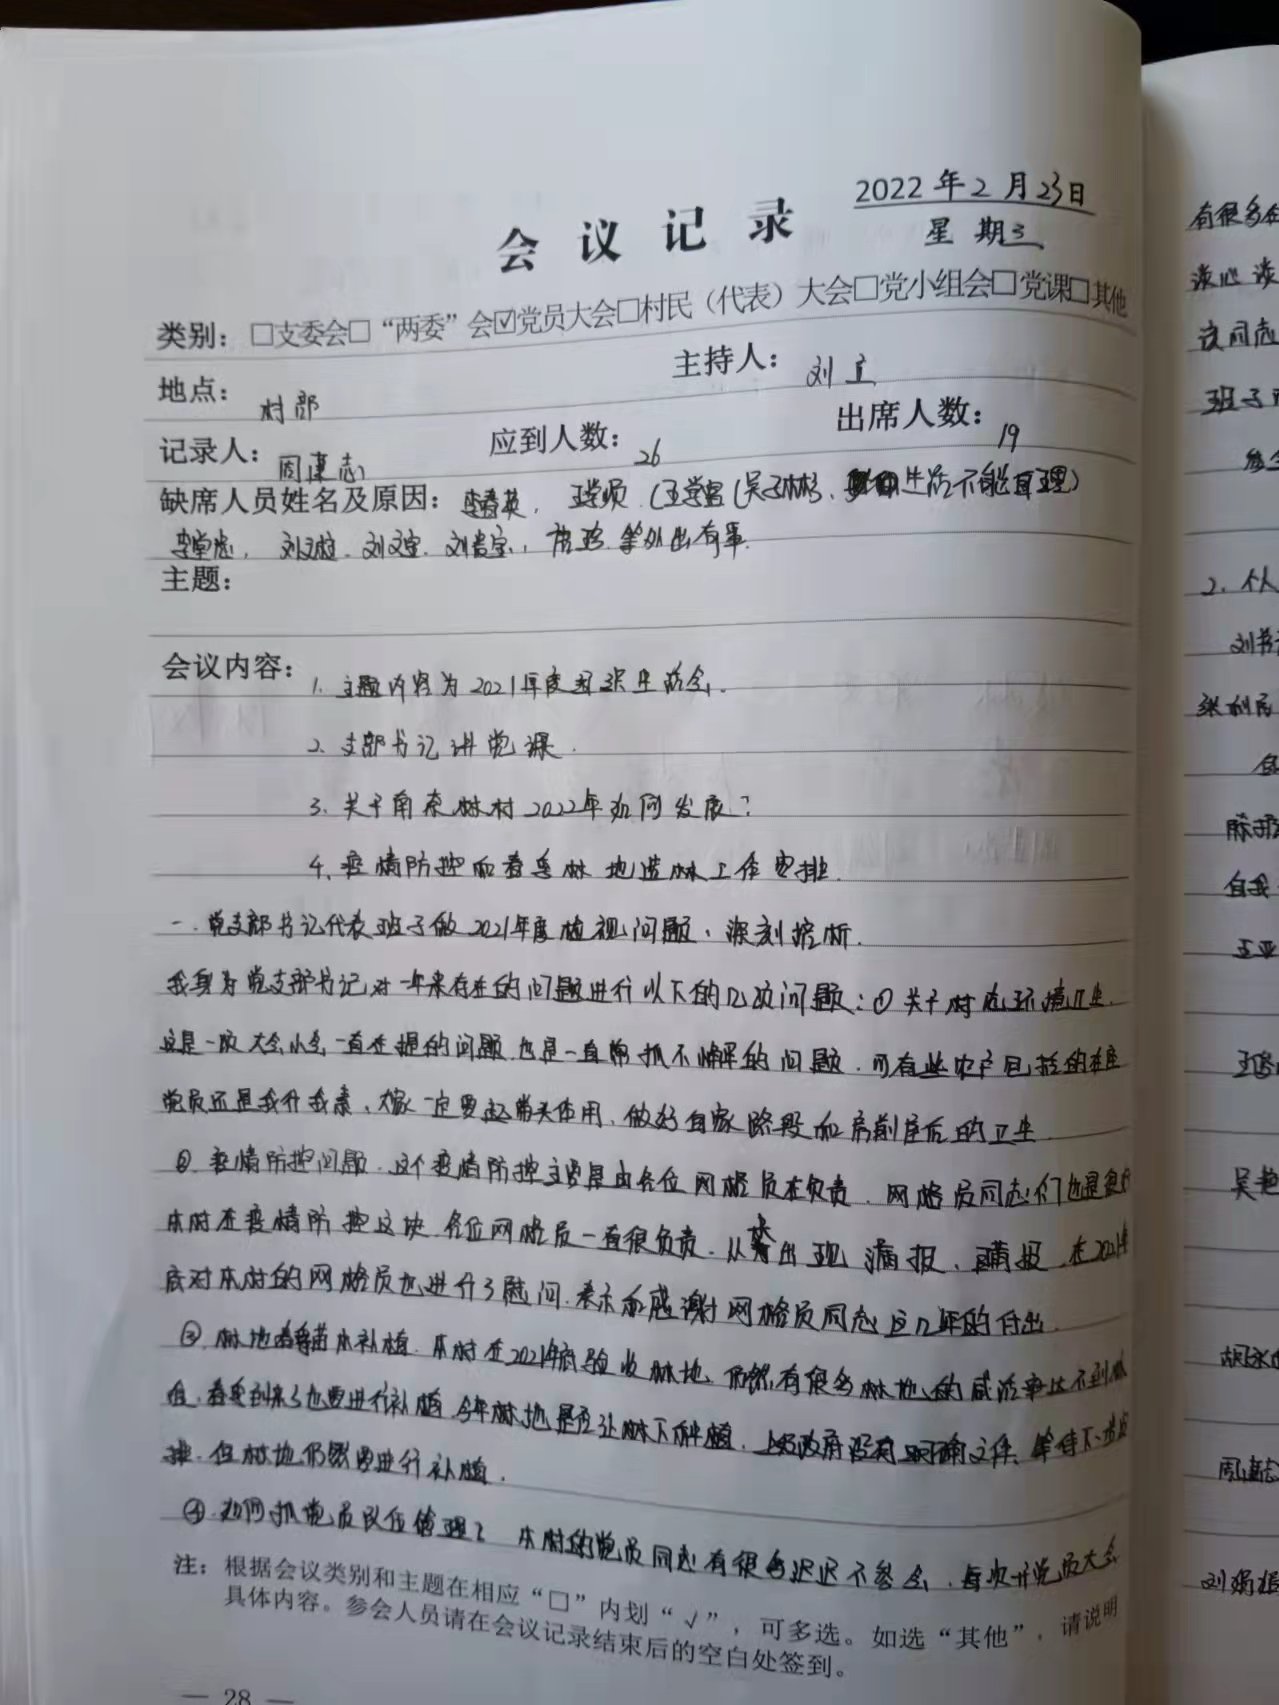 2022年2月23日
会议记录
星期三
类别：□支委会□“两委”会☑党员大会□村民（代表）大会□党小组会□党课□其他
地点：村部 主持人：刘立
记录人：周建志 应到人数：26 出席人数：19
缺席人员姓名及原因：李春英，王学顺（王学富（吴玉林、生活不能自理）
李堂忠，刘文 刘文宝 刘贵宝， 等外出有事
主题：
会议内容：1. 主题内容为2021年度组织生活会.
2. 支部书记讲党课.
3. 关于南柰林村2022年如何发展？
4. 疫情防控和春季林地造林工作安排.
一. 党支部书记代表班子做2021年度检视问题、深刻挖析.
我身为党支部书记对一年来存在的问题进行以下的几项问题：①关于村庄环境卫生.
这是一项大会小会一直在提的问题也是一直常抓不懈的问题.可有些农户包括的在座
党员还是我行我素、大家一定要起带头作用、做好自家路段和房前屋后的卫生
②疫情防控问题.这个疫情防控主要是由各位网格员在负责.网格员同志们也是很好
本村在疫情防控这块.各位网格员一直很负责.从未出现漏报、瞒报.在2021年
底对本村的网格员也进行了慰问.表示和感谢网格员同志这几年的付出.
③林地春季苗木补植.本村在2021年底验收林地、仍然有很多林地的成活率达不到
春季到来了也要进行补植.今年林地是否让林下种植.上级政府没有明确文件、等待下一步安
排.但林地仍然要进行补植.
④如何抓党员队伍管理？本村的党员同志有很多迟迟不参会、每次开党员大会
注：根据会议类别和主题在相应“□”内划“√”，可多选。如选“其他”，请说明
具体内容。参会人员请在会议记录结束后的空白处签到。
— 28 —
有很多
谈心谈
该同志
班子
2. 个人
刘书
张利民
自我
王亚
吴艳
胡永
周建志